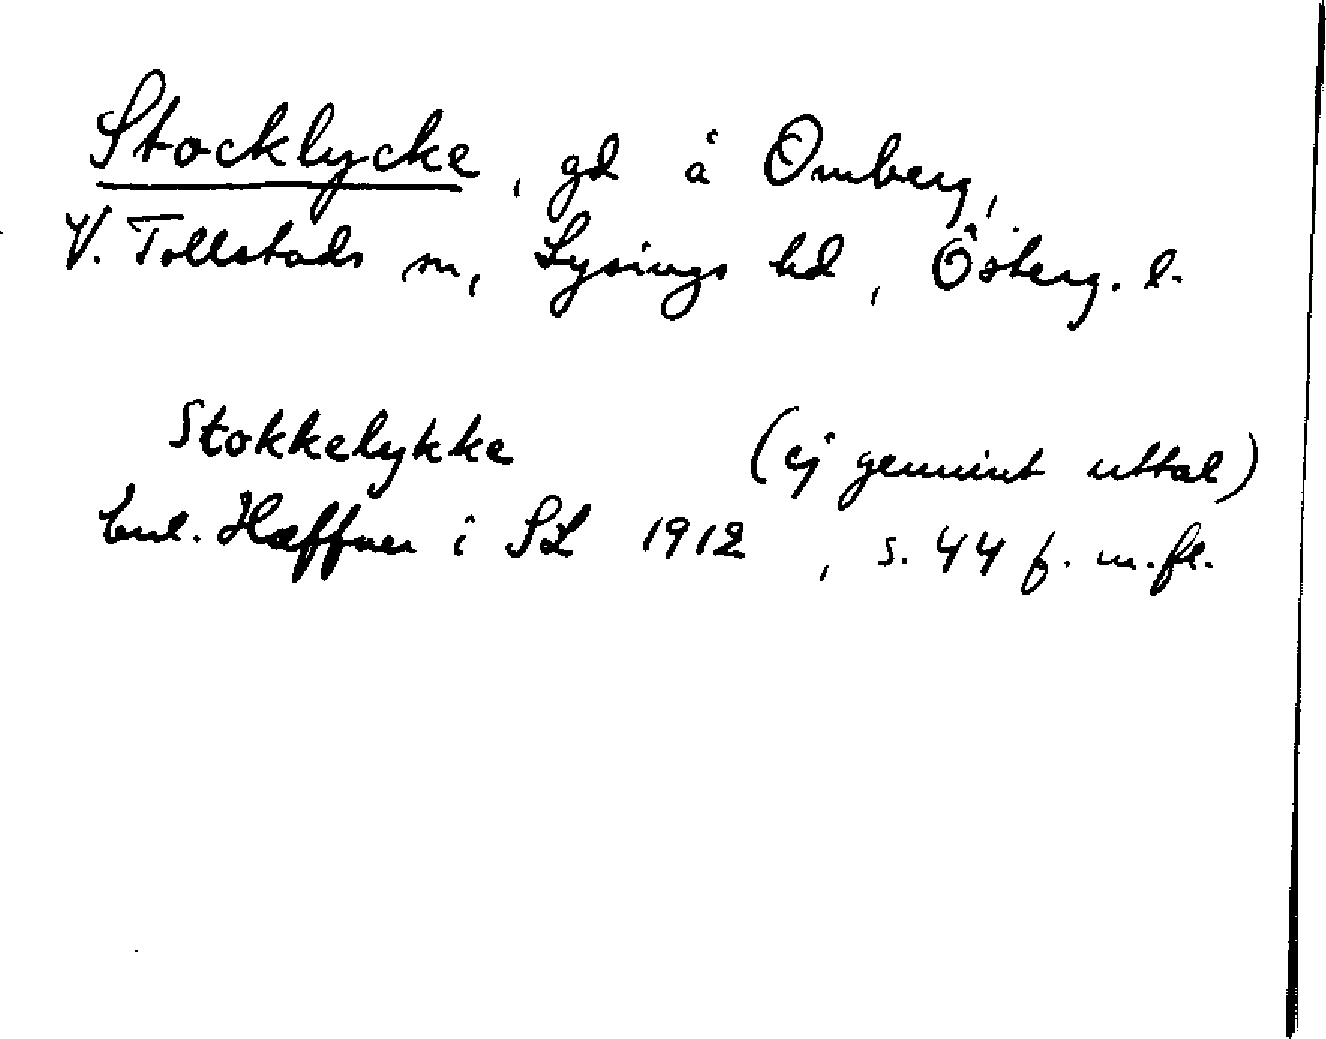 Stocklycke, gd å Omberg,
V. Tollstads sn, Lysings hd, Österg. l.
Stokkelykke (ej genuint uttal)
enl. Hæffner i SL 1912, s. 44 f. m.fl.